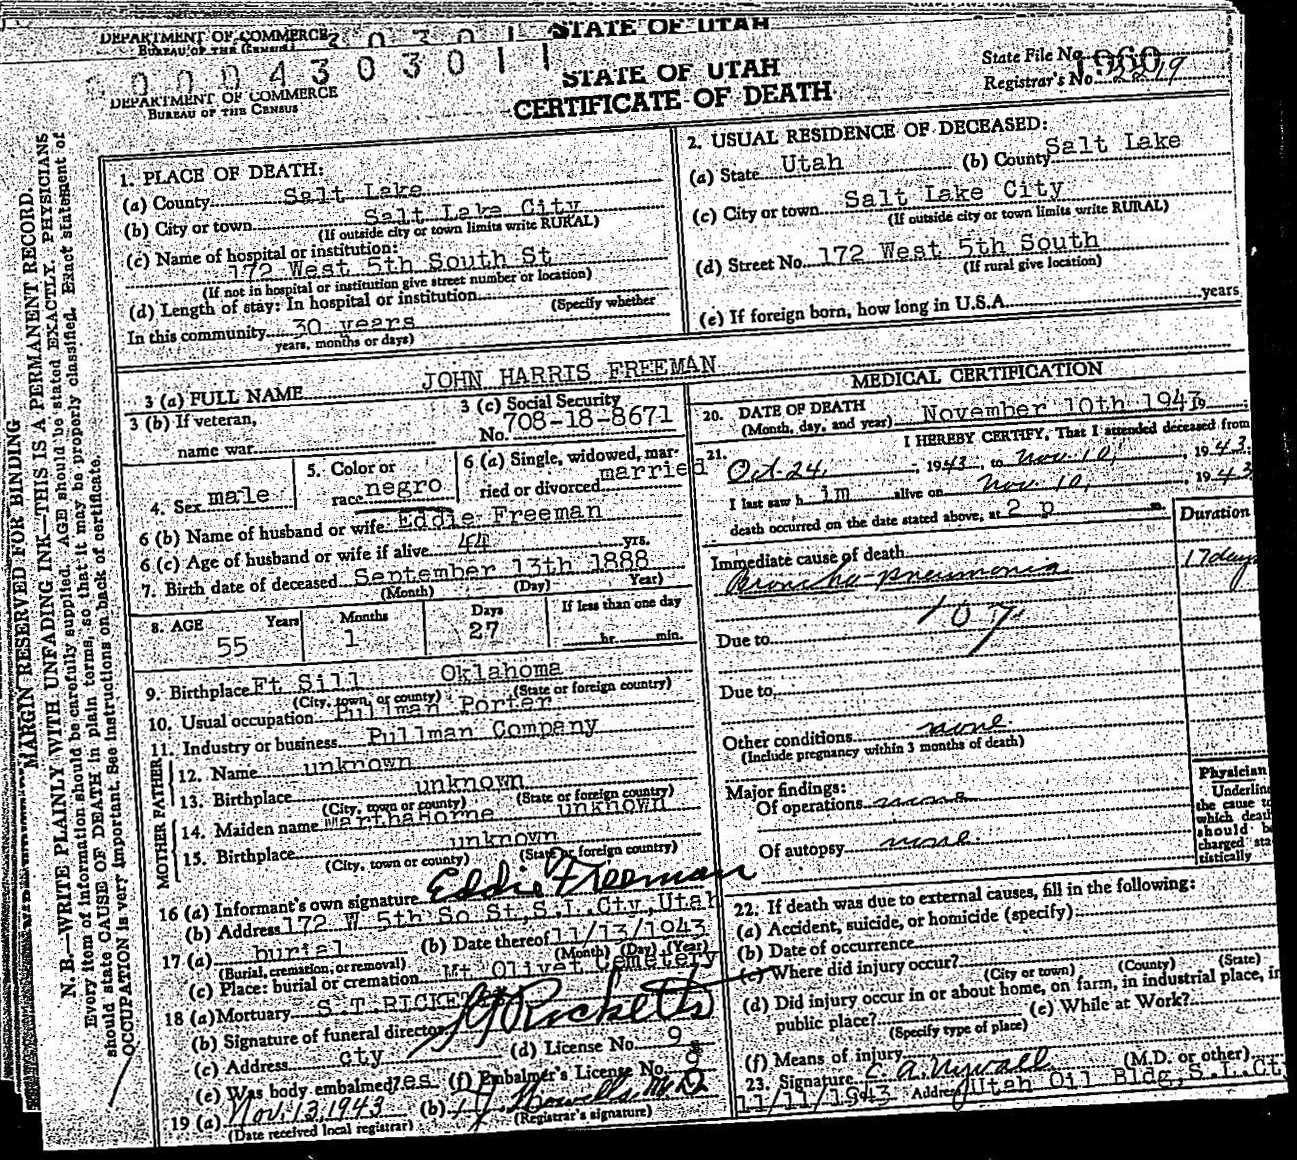 DEPARTMENT OF COMMERCE
BUREAU OF THE CENSUS
STATE OF UTAH
0 0 0 0 4 3 0 3 0 1 1
STATE OF UTAH
CERTIFICATE OF DEATH
DEPARTMENT OF COMMERCE
BUREAU OF THE CENSUS
State File No. 1960
Registrar's No. 2219
MARGIN RESERVED FOR BINDING
N. B.—WRITE PLAINLY WITH UNFADING INK—THIS IS A PERMANENT RECORD.
Every item of information should be carefully supplied. AGE should be stated EXACTLY. PHYSICIANS
should state CAUSE OF DEATH in plain terms, so that it may be properly classified. Exact statement of
OCCUPATION is very important. See instructions on back of certificate.
1. PLACE OF DEATH:
(a) County Salt Lake
(b) City or town Salt Lake City
(If outside city or town limits write RURAL)
(c) Name of hospital or institution:
172 West 5th South St
(If not in hospital or institution give street number or location)
(d) Length of stay: In hospital or institution
(Specify whether
In this community 30 years
years, months or days)
2. USUAL RESIDENCE OF DECEASED:
(a) State Utah (b) County Salt Lake
(c) City or town Salt Lake City
(If outside city or town limits write RURAL)
(d) Street No. 172 West 5th South
(If rural give location)
(e) If foreign born, how long in U.S.A. years
3 (a) FULL NAME JOHN HARRIS FREEMAN
3 (b) If veteran,
name war
3 (c) Social Security
No. 708-18-8671
4. Sex male
5. Color or
race negro
6 (a) Single, widowed, mar-
ried or divorced married
6 (b) Name of husband or wife Eddie Freeman
6 (c) Age of husband or wife if alive 44 yrs.
7. Birth date of deceased September 13th 1888
(Month) (Day) Year)
8. AGE Years Months Days If less than one day
55 1 27 hr. min.
9. Birthplace Ft Sill Oklahoma
(City, town, or county) (State or foreign country)
10. Usual occupation Pullman Porter
11. Industry or business Pullman Company
FATHER
12. Name unknown
13. Birthplace unknown
(City, town or county) (State or foreign country)
MOTHER
14. Maiden name Martha Horne unknown
15. Birthplace unknown
(City, town or county) (State or foreign country)
16 (a) Informant's own signature Eddie Freeman
(b) Address 172 W 5th So St., S.L.Cty, Utah
17 (a) burial (b) Date thereof 11/13/1943
(Burial, cremation, or removal) (Month) (Day) (Year)
(c) Place: burial or cremation Mt Olivet Cemetery
18 (a) Mortuary S.T.RICKE
(b) Signature of funeral director Ricketts
(c) Address cty (d) License No. 9
(e) Was body embalmed? yes (f) Embalmer's License No. 9
19 (a) Nov. 13, 1943 (b) M.D.
(Date received local registrar) (Registrar's signature)
MEDICAL CERTIFICATION
20. DATE OF DEATH
(Month, day, and year) November 10th 1943 19
21. I HEREBY CERTIFY, That I attended deceased from
Oct-24, 1943, to Nov. 10, 1943.
I last saw h im alive on Nov 10, 1943
death occurred on the date stated above, at 2 p m.
Duration
Immediate cause of death
Broncho-pneumonia 17 days
107
Due to
Due to
Other conditions none
(Include pregnancy within 3 months of death)
Major findings:
Of operations none
Of autopsy none
Physician
Underline
the cause to
which death
should be
charged sta-
tistically
22. If death was due to external causes, fill in the following:
(a) Accident, suicide, or homicide (specify):
(b) Date of occurrence
(c) Where did injury occur?
(City or town) (County) (State)
(d) Did injury occur in or about home, on farm, in industrial place, in
public place? (e) While at Work?
(Specify type of place)
(f) Means of injury
23. Signature C. A. (M.D. or other)
11/11/1943 Address Utah Oil Bldg, S.L.Ct